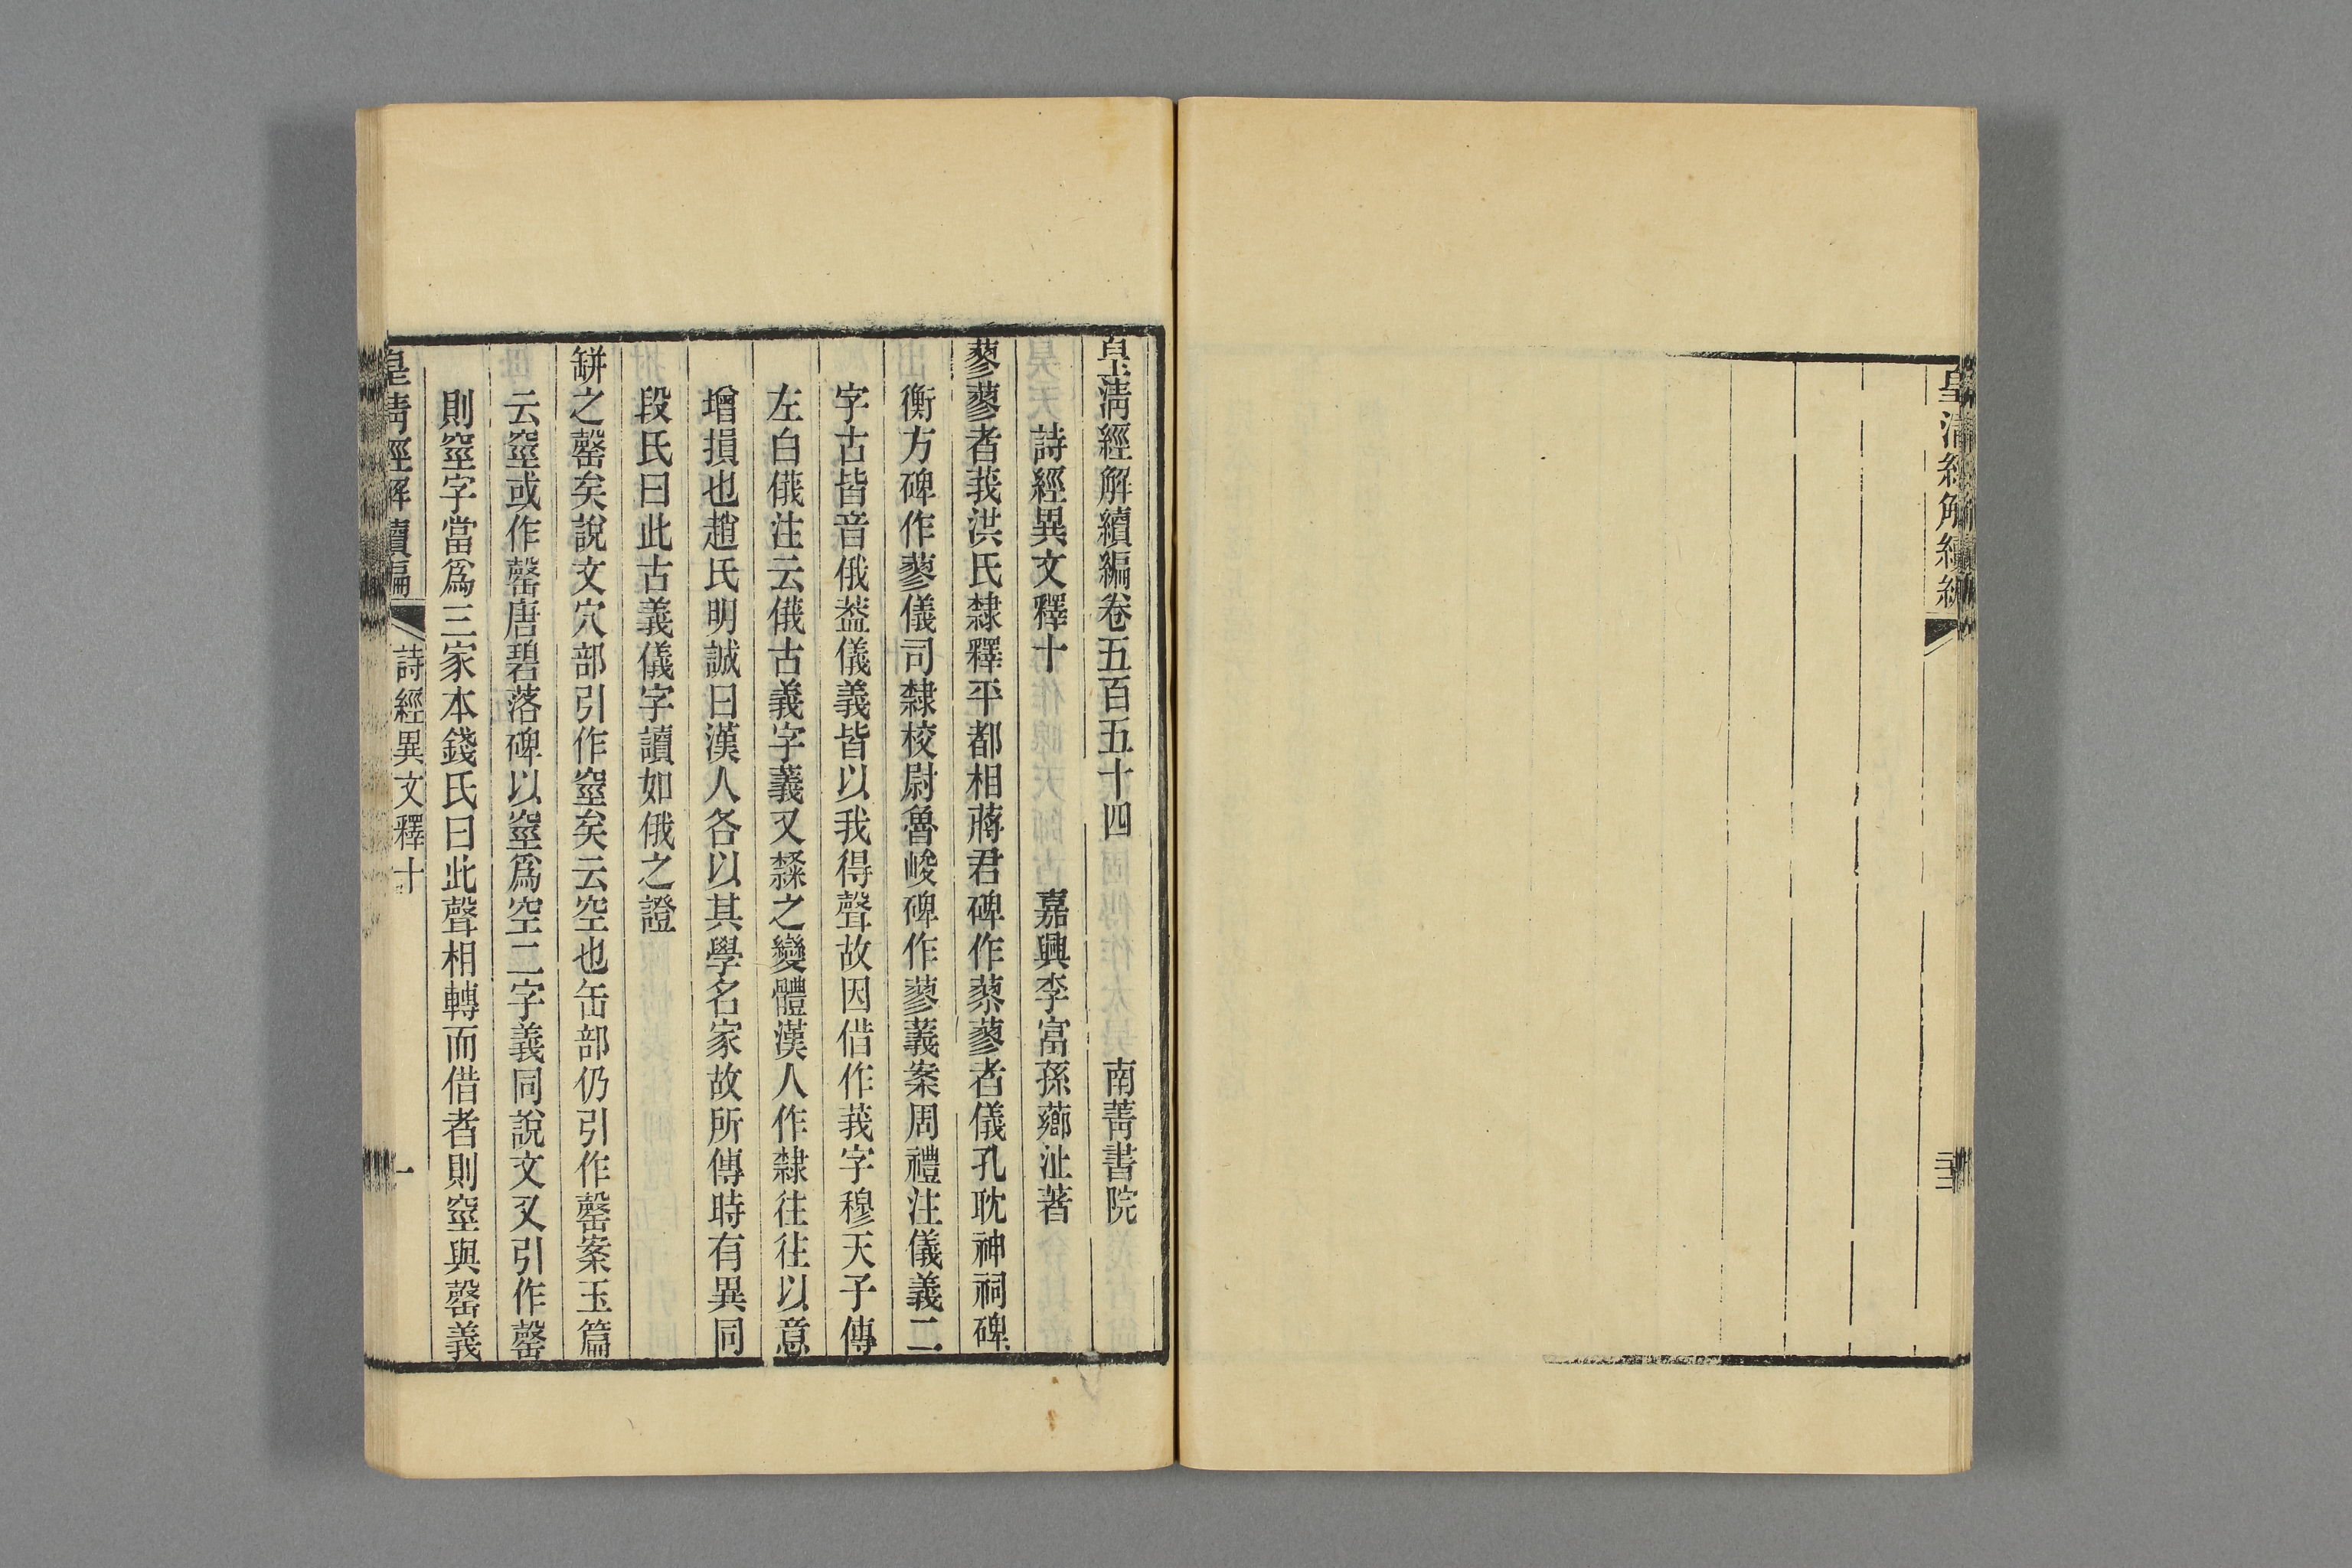 皇清經解續編
三十三
皇清經解續編卷五百五十四　南菁書院
詩經異文釋十　嘉興李富孫薌沚著
蓼蓼者莪洪氏隸釋平都相蔣君碑作蓼蓼者儀孔耽神祠碑
衡方碑作蓼儀司隸校尉魯峻碑作蓼義案周禮注儀義二
字古皆音俄葢儀義皆以我得聲故因借作莪字穆天子傳
左白俄注云俄古義字義又䕀之變體漢人作隸往往以意
增損也趙氏明誠曰漢人各以其學名家故所傳時有異同
段氏曰此古義儀字讀如俄之證
缾之罄矣說文穴部引作窒矣云空也缶部仍引作罄案玉篇
云窒或作罄唐碧落碑以窒爲空二字義同說文又引作罄
則窒字當爲三家本錢氏曰此聲相轉而借者則窒與罄義
皇清經解續編　詩經異文釋十　一